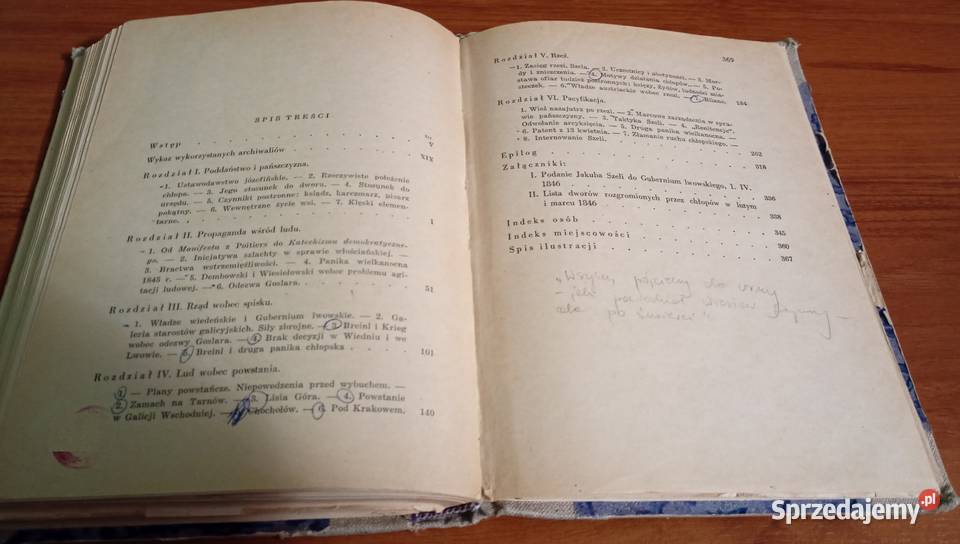 SPIS TREŚCI
Str.
Wstęp V
Wykaz wykorzystanych archiwaliów XIX
Rozdział I. Poddaństwo i pańszczyzna.
1. Ustawodawstwo józefińskie. — 2. Rzeczywiste położenie
chłopa. — 3. Jego stosunek do dworu. — 4. Stosunek do
urzędu. — 5. Czynniki postronne: ksiądz, karczmarz, pisarz
pokątny. — 6. Wewnętrzne życie wsi. — 7. Klęski elemen-
tarne. 1
Rozdział II. Propaganda wśród ludu.
1. Od Manifestu z Poitiers do Katechizmu demokratyczne-
go. — 2. Inicjatywa szlachty w sprawie włościańskiej. —
3. Bractwa wstrzemięźliwości. — 4. Panika wielkanocna
1845 r — 5. Dembowski i Wiesiołowski wobec problemu agi-
tacji ludowej. — 6. Odezwa Goslara. 51
Rozdział III. Rząd wobec spisku.
1. Władze wiedeńskie i Gubernium lwowskie. — 2. Ga-
leria starostów galicyjskich. Siły zbrojne. — 3. Breinl i Krieg
wobec odezwy Goslara. — 4. Brak decyzji w Wiedniu i we
Lwowie. — 5. Breinl i druga panika chłopska 101
Rozdział IV. Lud wobec powstania.
1 — Plany powstańcze. Niepowodzenia przed wybuchem. —
2. Zamach na Tarnów. — 3. Lisia Góra. — 4. Powstanie
w Galicji Wschodniej. — Chochołów. — 6. Pod Krakowem. 140
369
Rozdział V. Rzeź.
1. Zasięg rzezi. Szela. — 2. Uczestnicy i obojętni. — 3. Mor-
dy i zniszczenia. — 4. Motywy działania chłopów. — 5. Po-
stawa ofiar tudzież postronnych: księży, Żydów, ludności mia-
steczek. — 6. Władze austriackie wobec rzezi. — 7. Bilans. 184
Rozdział VI. Pacyfikacja.
1. Wieś nazajutrz po rzezi. — 2. Marcowe zarządzenia w spra-
wie pańszczyzny. — 3. Taktyka Szeli. — 4. „Renitencje".
Odwołanie arcyksięcia. — 5. Druga panika wielkanocna. —
6. Patent z 13 kwietnia. — 7. Złamanie ruchu chłopskiego. —
8. Internowanie Szeli. 262
Epilog 318
Załączniki:
I. Podanie Jakuba Szeli do Gubernium lwowskiego, 1. IV.
1846 336
II. Lista dworów rozgromionych przez chłopów w lutym
i marcu 1846 338
Indeks osób 345
Indeks miejscowości 360
Spis ilustracji 367
Sprzedajemy.pl